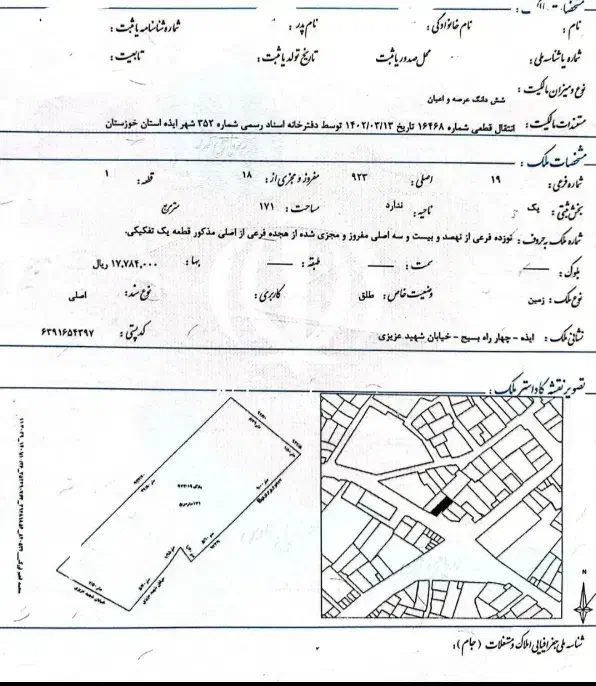 مشخصات مالک :
نام : نام خانوادگی : نام پدر : شماره شناسنامه یا ثبت :
شماره یا شناسه ملی : محل صدور یا ثبت تاریخ تولد یا ثبت : تابعیت :
نوع و میزان مالکیت : شش دانگ عرصه و اعیان
مستندات مالکیت : انتقال قطعی شماره ۱۶۴۶۸ تاریخ ۱۴۰۲/۰۳/۱۳ توسط دفترخانه اسناد رسمی شماره ۳۵۲ شهر ایذه استان خوزستان
مشخصات ملک :
شماره فرعی : ۱۹ اصلی : ۹۲۳ مفروز و مجزی از : ۱۸ قطعه : ۱
بخش ثبتی : یک ناحیه : ندارد مساحت : ۱۷۱ مترمربع
شماره ملک به حروف : نوزده فرعی از نهصد و بیست و سه اصلی مفروز و مجزی شده از هجده فرعی از اصلی مذکور قطعه یک تفکیکی.
بلوک : سمت : طبقه : بها : ۱۷,۷۸۴,۰۰۰ ریال
نوع ملک : زمین وضعیت خاص : طلق کاربری : نوع سند : اصلی
نشانی ملک : ایذه - چهار راه بسیج - خیابان شهید عزیزی کدپستی : ۶۳۹۱۶۵۴۳۹۷
تصویر نقشه کاداستر ملک :
N
شناسه ملی جغرافیایی املاک و مستغلات (جام) :